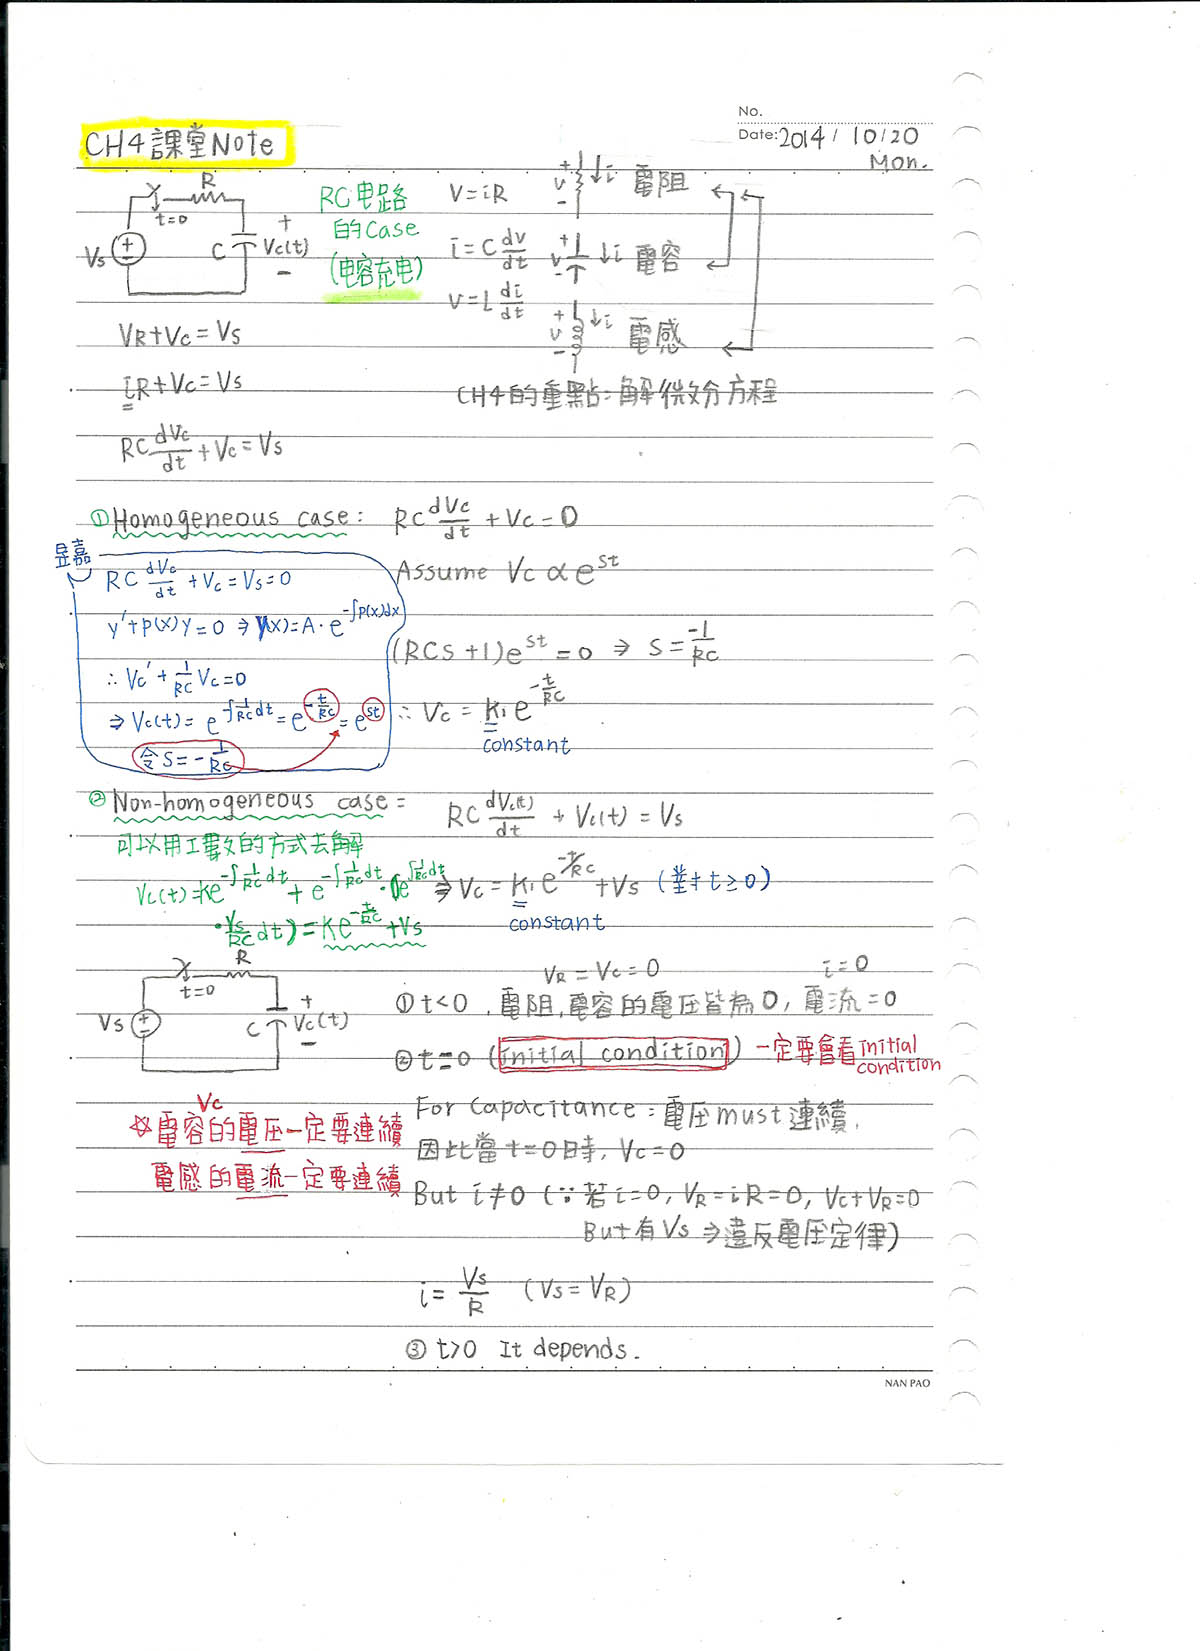 No.
Date: 2014 / 10/20
Mon.
CH4 課堂Note
R
t=0
Vs
C
+
Vc(t)
−
RC 电路
的Case
(电容充电)
V=iR
+ v − ↓i 電阻
i=C dv/dt
+ v − ↓i 電容
v=L di/dt
+ v − ↓i 電感
CH4的重點:解微分方程
VR+Vc=Vs
iR+Vc=Vs
RC dVc/dt +Vc=Vs
① Homogeneous case: RC dVc/dt +Vc=0
昱嘉
RC dVc/dt +Vc=Vs=0
y'+p(x)y=0 ⇒ y(x)=A·e^-∫p(x)dx
∴ Vc'+ 1/RC Vc=0
⇒ Vc(t)= e^-∫1/RC dt = e^-t/RC = e^st
令 S=-1/RC
Assume Vc ∝ e^st
(RCS+1)e^st=0 ⇒ S= -1/RC
∴ Vc = K1 e^-t/RC
constant
② Non-homogeneous case= RC dVc(t)/dt + Vc(t) = Vs
可以用工數的方式去解
Vc(t)=ke^-∫1/RC dt + e^-∫1/RC dt ·(∫e^∫1/RC dt
· Vs/RC dt) = Ke^-t/RC +Vs
⇒ Vc= K1 e^-t/RC +Vs (對於 t≥0)
constant
R
t=0
Vs
C
+
Vc(t)
−
VR = Vc = 0 i=0
① t<0 , 電阻,電容的電压皆為0, 電流=0
② t=0 (initial condition) 一定要會看 initial condition
Vc
☆ 電容的電压一定要連續
電感的電流一定要連續
For Capacitance: 電压must 連續,
因此當t=0時, Vc=0
But i≠0 (∵若i=0, VR=iR=0, Vc+VR=0
But 有Vs ⇒違反電压定律)
i= Vs/R (Vs=VR)
③ t>0 It depends.
NAN PAO